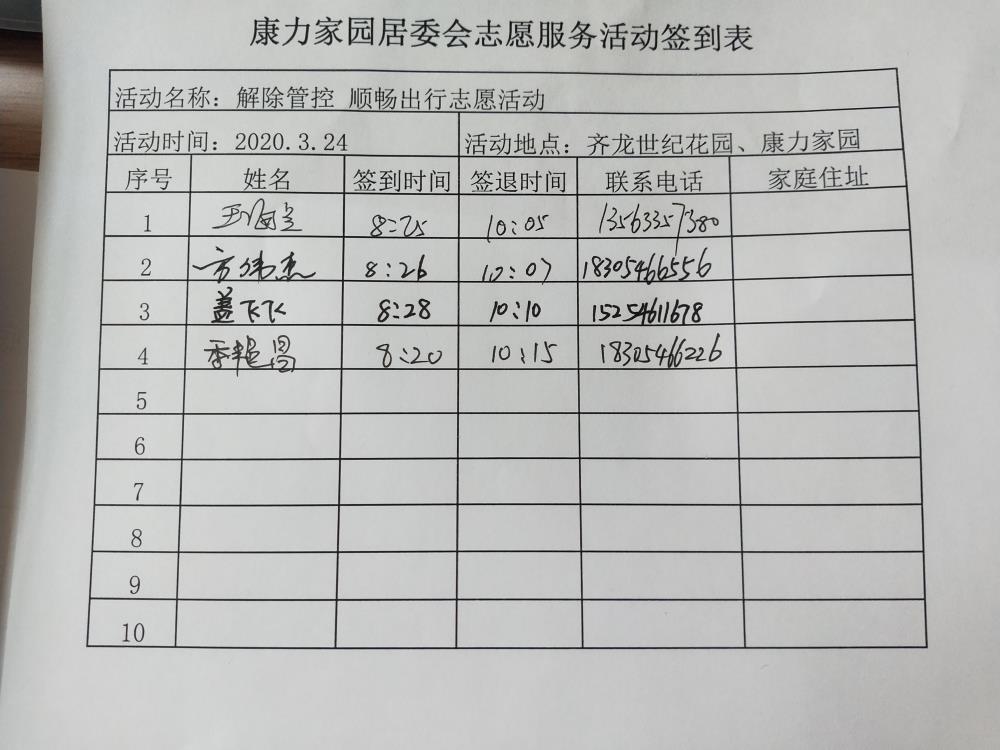 康力家园居委会志愿服务活动签到表
活动名称：解除管控 顺畅出行志愿活动
活动时间：2020.3.24 活动地点：齐龙世纪花园、康力家园
序号 姓名 签到时间 签退时间 联系电话 家庭住址
1 8:25 10:05 13563357380
2 方伟杰 8:26 10:07 18305466556
3 盖飞飞 8:28 10:10 15254611678
4 8:20 10:15 18305466226
5
6
7
8
9
10